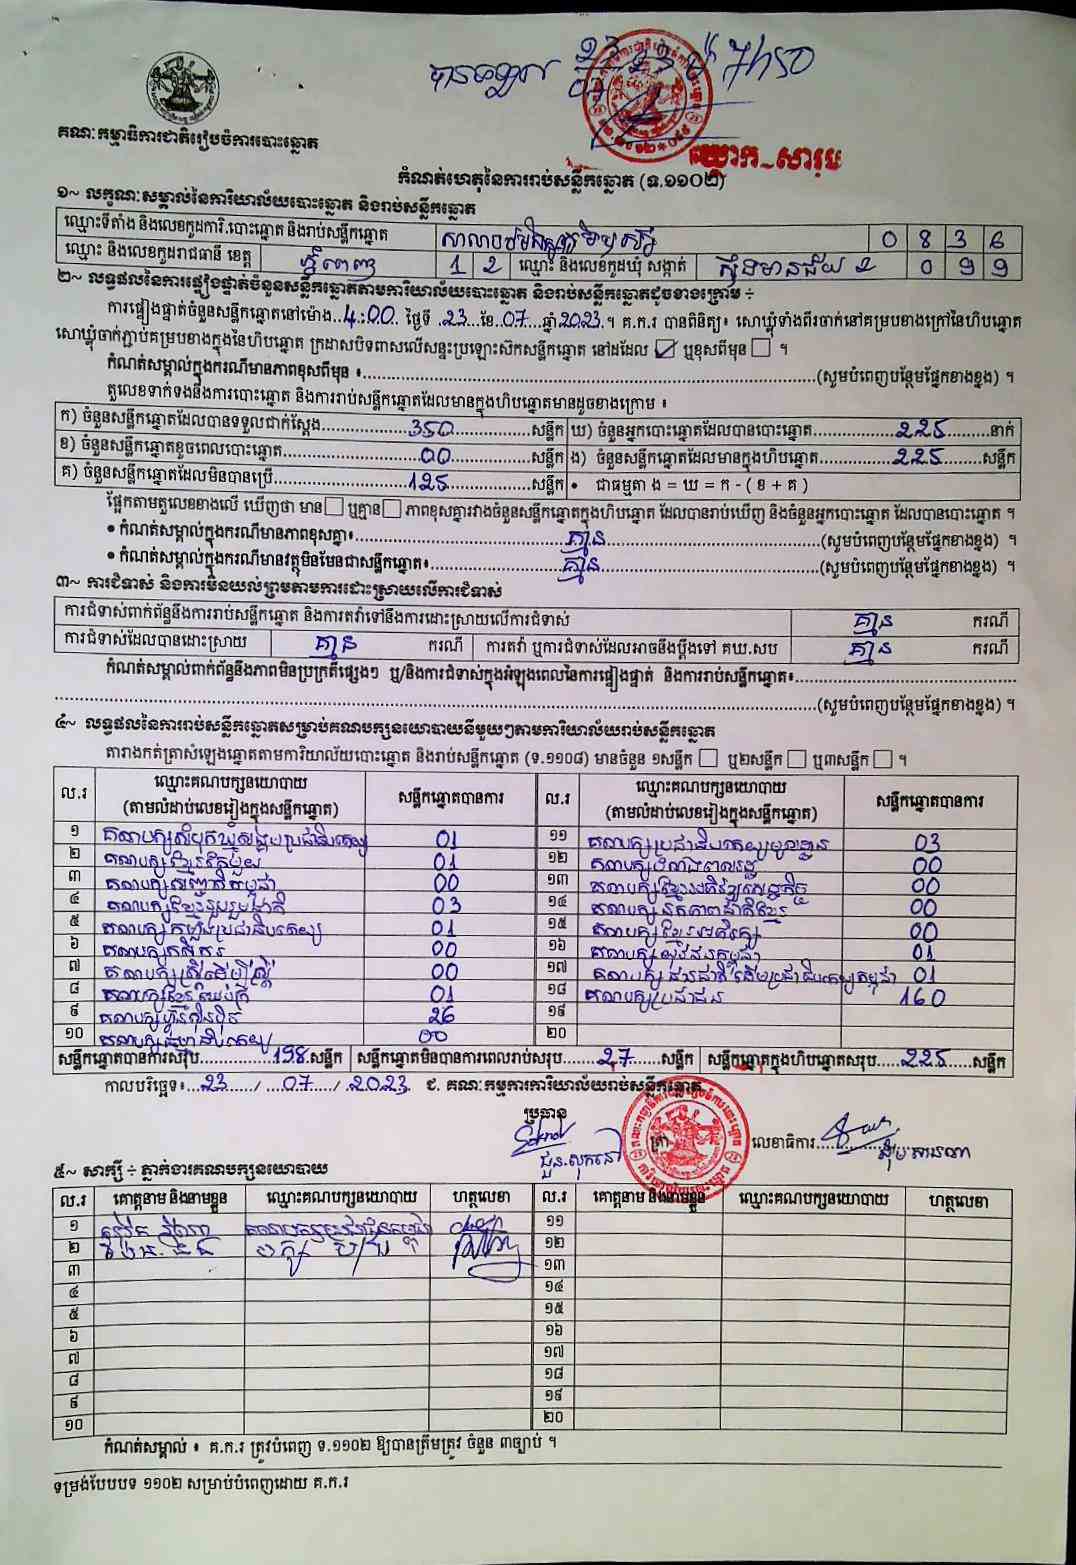 បានចម្លង 7h50
គណៈកម្មាធិការជាតិរៀបចំការបោះឆ្នោត
ឃ្លោក_សារុម
កំណត់ហេតុនៃការរាប់សន្លឹកឆ្នោត (ទ.១១០២)
១~ លក្ខណៈសម្គាល់នៃការិយាល័យបោះឆ្នោត និងរាប់សន្លឹកឆ្នោត
ឈ្មោះទីតាំង និងលេខកូដការិ.បោះឆ្នោត និងរាប់សន្លឹកឆ្នោត សាលាបឋមសិក្សា 0 8 3 6
ឈ្មោះ និងលេខកូដរាជធានី ខេត្ត ភ្នំពេញ 1 2 ឈ្មោះ និងលេខកូដឃុំ សង្កាត់ ស្ទឹងមានជ័យ 2 0 9 9
២~ លទ្ធផលនៃការផ្ទៀងផ្ទាត់ចំនួនសន្លឹកឆ្នោតតាមការិយាល័យបោះឆ្នោត និងរាប់សន្លឹកឆ្នោតដូចខាងក្រោម ÷
ការផ្ទៀងផ្ទាត់ចំនួនសន្លឹកឆ្នោតនៅម៉ោង..4:00.. ថ្ងៃទី .23..ខែ.07...ឆ្នាំ.2023.។ គ.ក.រ បានពិនិត្យ៖ សោឃ្លុំទាំងពីរចាក់នៅគម្របខាងក្រៅនៃហិបឆ្នោត
សោឃ្លុំចាក់ភ្ជាប់គម្របខាងក្នុងនៃហិបឆ្នោត ក្រដាសបិទពាសលើសន្ទះប្រឡោះស៊កសន្លឹកឆ្នោត នៅដដែល ☑ ឬខុសពីមុន ☐ ។
កំណត់សម្គាល់ក្នុងករណីមានភាពខុសពីមុន ៖..........(សូមបំពេញបន្ថែមផ្នែកខាងខ្នង) ។
តួលេខទាក់ទងនឹងការបោះឆ្នោត និងការរាប់សន្លឹកឆ្នោតដែលមានក្នុងហិបឆ្នោតមានដូចខាងក្រោម ៖
ក) ចំនួនសន្លឹកឆ្នោតដែលបានទទួលជាក់ស្តែង..........350..........សន្លឹក ឃ) ចំនួនអ្នកបោះឆ្នោតដែលបានបោះឆ្នោត..........225..........នាក់
ខ) ចំនួនសន្លឹកឆ្នោតខូចពេលបោះឆ្នោត..........00..........សន្លឹក ង) ចំនួនសន្លឹកឆ្នោតដែលមានក្នុងហិបឆ្នោត..........225..........សន្លឹក
គ) ចំនួនសន្លឹកឆ្នោតដែលមិនបានប្រើ..........125..........សន្លឹក • ជាធម្មតា ង = ឃ = ក - ( ខ + គ )
ផ្អែកតាមតួលេខខាងលើ ឃើញថា មាន☐ ឬគ្មាន☐ ភាពខុសគ្នារវាងចំនួនសន្លឹកឆ្នោតក្នុងហិបឆ្នោត ដែលបានរាប់ឃើញ និងចំនួនអ្នកបោះឆ្នោត ដែលបានបោះឆ្នោត ។
• កំណត់សម្គាល់ក្នុងករណីមានភាពខុសគ្នា៖..........គ្មាន..........(សូមបំពេញបន្ថែមផ្នែកខាងខ្នង) ។
• កំណត់សម្គាល់ក្នុងករណីមានវត្ថុមិនមែនជាសន្លឹកឆ្នោត៖..........គ្មាន..........(សូមបំពេញបន្ថែមផ្នែកខាងខ្នង) ។
៣~ ការជំទាស់ និងការមិនយល់ព្រមតាមការដោះស្រាយលើការជំទាស់
ការជំទាស់ពាក់ព័ន្ធនឹងការរាប់សន្លឹកឆ្នោត និងការតវ៉ាទៅនឹងការដោះស្រាយលើការជំទាស់ គ្មាន ករណី
ការជំទាស់ដែលបានដោះស្រាយ គ្មាន ករណី ការតវ៉ា ឬការជំទាស់ដែលអាចនឹងប្តឹងទៅ គឃ.សប គ្មាន ករណី
កំណត់សម្គាល់ពាក់ព័ន្ធនឹងភាពមិនប្រក្រតីផ្សេងៗ ឬ/និងការជំទាស់ក្នុងអំឡុងពេលនៃការផ្ទៀងផ្ទាត់ និងការរាប់សន្លឹកឆ្នោត៖..........
..........(សូមបំពេញបន្ថែមផ្នែកខាងខ្នង) ។
៤~ លទ្ធផលនៃការរាប់សន្លឹកឆ្នោតសម្រាប់គណបក្សនយោបាយនីមួយៗតាមការិយាល័យរាប់សន្លឹកឆ្នោត
តារាងកត់ត្រាសំឡេងឆ្នោតតាមការិយាល័យបោះឆ្នោត និងរាប់សន្លឹកឆ្នោត (ទ.១១០៨) មានចំនួន ១សន្លឹក ☐ ឬ២សន្លឹក ☐ ឬ៣សន្លឹក ☐ ។
ល.រ ឈ្មោះគណបក្សនយោបាយ (តាមលំដាប់លេខរៀងក្នុងសន្លឹកឆ្នោត) សន្លឹកឆ្នោតបានការ ល.រ ឈ្មោះគណបក្សនយោបាយ (តាមលំដាប់លេខរៀងក្នុងសន្លឹកឆ្នោត) សន្លឹកឆ្នោតបានការ
១ គណបក្សសំបុកឃ្មុំសង្គមប្រជាធិបតេយ្យ 01 ១១ គណបក្សប្រជាធិបតេយ្យមូលដ្ឋាន 03
២ គណបក្សខ្មែររួមរួម 01 ១២ គណបក្សបំណងពលរដ្ឋ 00
៣ គណបក្សសញ្ជាតិកម្ពុជា 00 ១៣ គណបក្សខ្មែរអភិវឌ្ឍសេដ្ឋកិច្ច 00
៤ គណបក្សខ្មែររួបរួមជាតិ 03 ១៤ គណបក្សឯកភាពជាតិខ្មែរ 00
៥ គណបក្សកម្លាំងប្រជាធិបតេយ្យ 01 ១៥ គណបក្សខ្មែរអភិរក្ស 00
៦ គណបក្សកសិករ 00 ១៦ គណបក្សយុវជនកម្ពុជា 01
៧ គណបក្សស្ត្រីដើម្បីស្ត្រី 00 ១៧ គណបក្សជនជាតិដើមប្រជាធិបតេយ្យកម្ពុជា 01
៨ គណបក្សខ្មែរឈប់ក្រ 01 ១៨ គណបក្សប្រជាជន 160
៩ គណបក្សហ៊្វុនស៊ិនប៉ិច 26 ១៩
១០ គណបក្សធម្មាធិបតេយ្យ 00 ២០
សន្លឹកឆ្នោតបានការសរុប..........198.សន្លឹក សន្លឹកឆ្នោតមិនបានការពេលរាប់សរុប.......27......សន្លឹក សន្លឹកឆ្នោតក្នុងហិបឆ្នោតសរុប......225.....សន្លឹក
កាលបរិច្ឆេទ៖...23...../...07..../...2023. ជ. គណៈកម្មការការិយាល័យរាប់សន្លឹកឆ្នោត
ប្រធាន
លេខាធិការ..........
៥~ សាក្សី ÷ ភ្នាក់ងារគណបក្សនយោបាយ
ល.រ គោត្តនាម និងនាមខ្លួន ឈ្មោះគណបក្សនយោបាយ ហត្ថលេខា ល.រ គោត្តនាម និងនាមខ្លួន ឈ្មោះគណបក្សនយោបាយ ហត្ថលេខា
១ គណបក្សប្រជាជនកម្ពុជា ១១
២ បក្ស ១២
៣ ១៣
៤ ១៤
៥ ១៥
៦ ១៦
៧ ១៧
៨ ១៨
៩ ១៩
១០ ២០
កំណត់សម្គាល់ ៖ គ.ក.រ ត្រូវបំពេញ ទ.១១០២ ឱ្យបានត្រឹមត្រូវ ចំនួន ៣ច្បាប់ ។
ទម្រង់បែបបទ ១១០២ សម្រាប់បំពេញដោយ គ.ក.រ